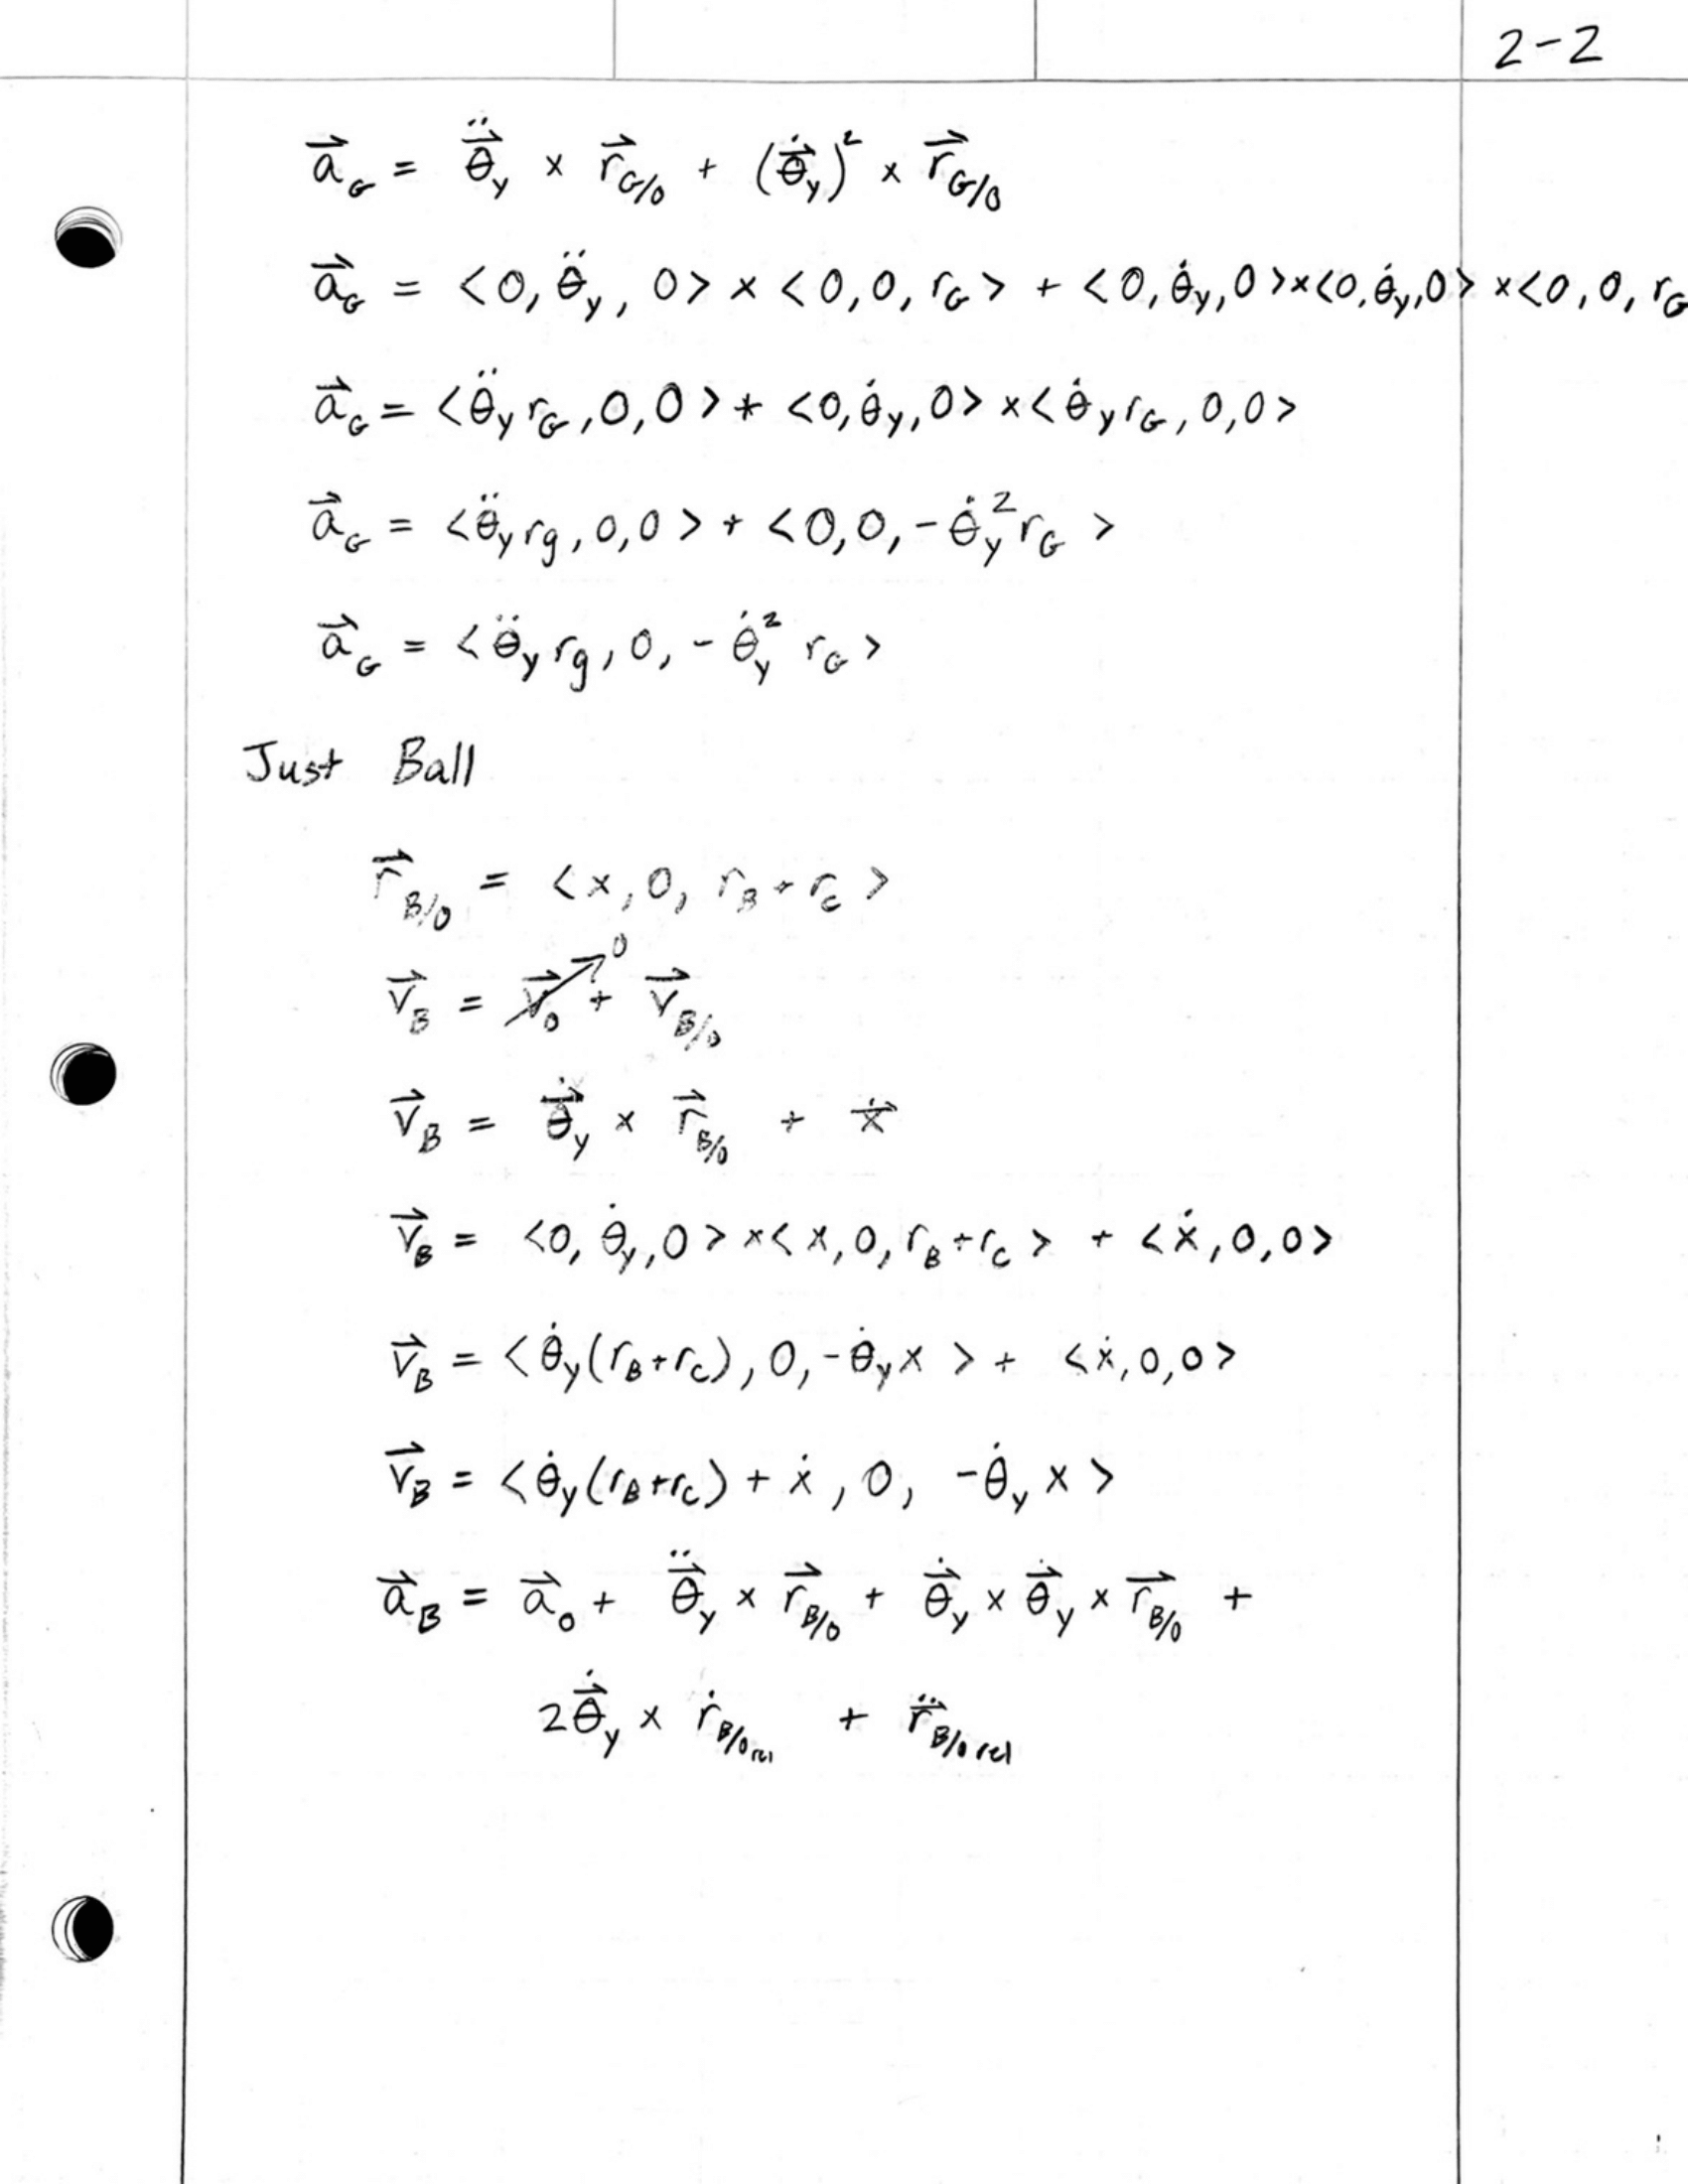 2-2
a⃗_G = θ̈⃗_y × r⃗_G/O + (θ̇⃗_y)² × r⃗_G/O
a⃗_G = <0, θ̈_y, 0> × <0, 0, r_G> + <0, θ̇_y, 0> × <0, θ̇_y, 0> × <0, 0, r_G
a⃗_G = <θ̈_y r_G, 0, 0> + <0, θ̇_y, 0> × <θ̇_y r_G, 0, 0>
a⃗_G = <θ̈_y r_g, 0, 0> + <0, 0, -θ̇_y² r_G>
a⃗_G = <θ̈_y r_g, 0, -θ̇_y² r_G>
Just Ball
r⃗_B/O = <x, 0, r_B + r_C>
v⃗_B = v⃗_O + v⃗_B/O
0
v⃗_B = θ̇⃗_y × r⃗_B/O + ẋ⃗
v⃗_B = <0, θ̇_y, 0> × <x, 0, r_B + r_C> + <ẋ, 0, 0>
v⃗_B = <θ̇_y(r_B + r_C), 0, -θ̇_y x> + <ẋ, 0, 0>
v⃗_B = <θ̇_y(r_B + r_C) + ẋ, 0, -θ̇_y x>
a⃗_B = a⃗_O + θ̈⃗_y × r⃗_B/O + θ̇⃗_y × θ̇⃗_y × r⃗_B/O +
2θ̇⃗_y × ṙ_B/O rel + r̈⃗_B/O rel